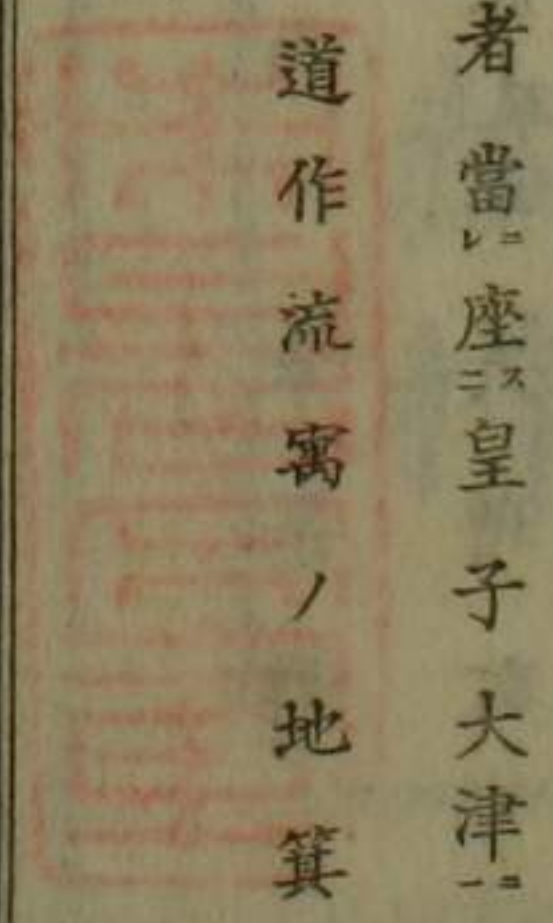 者當ニレ座ス二皇子大津ニ一
道作流寓ノ地箕